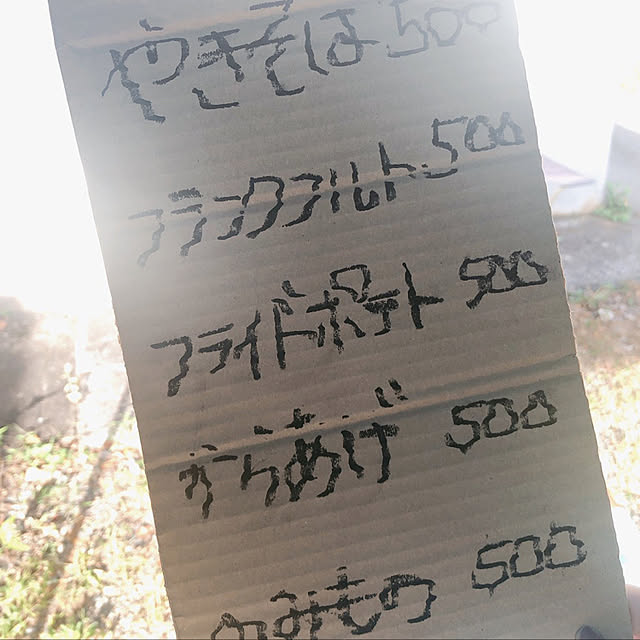 やきそば 500
フランクフルト 500
フライドポテト 500
からあげ 500
のみもの 500